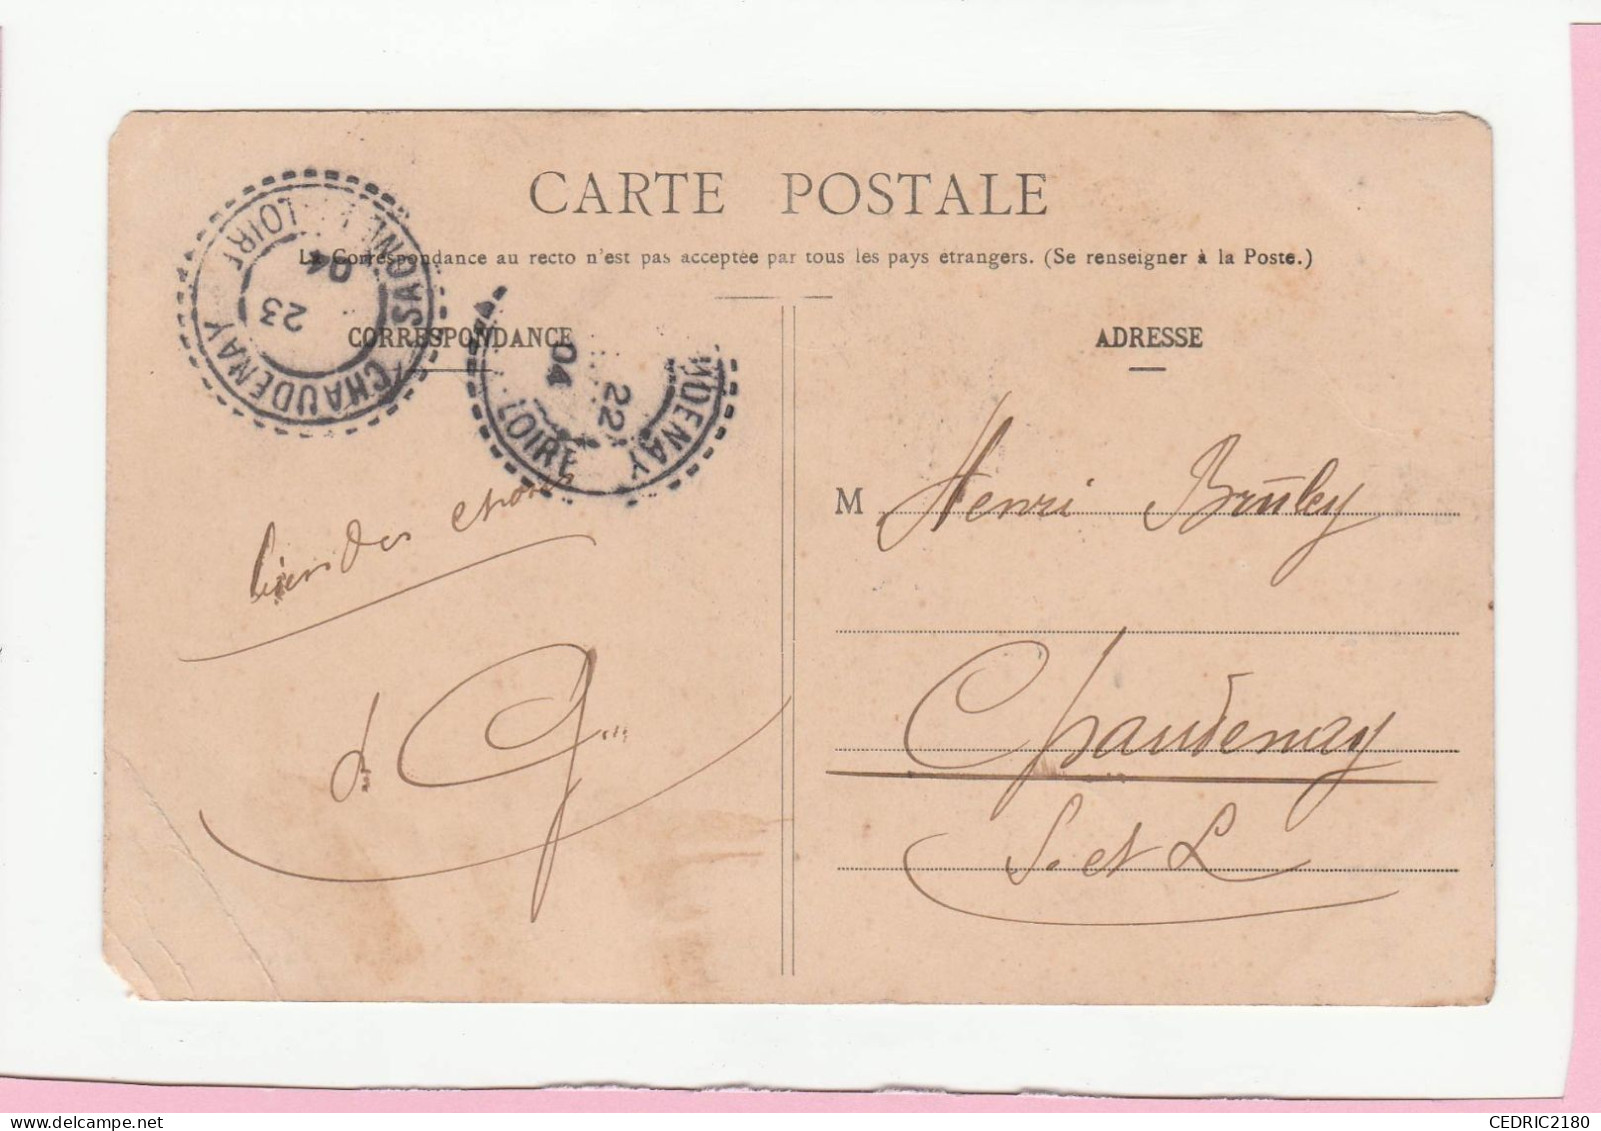 CARTE POSTALE
La Correspondance au recto n'est pas acceptée par tous les pays étrangers. (Se renseigner à la Poste.)
CORRESPONDANCE
ADRESSE
CHAUDENAY
SAONE
LOIRE
23
04
DENAY
LOIRE
22
04
bien des choses
M Henri Brûley
Chaudenay
S. et L
CEDRIC2180